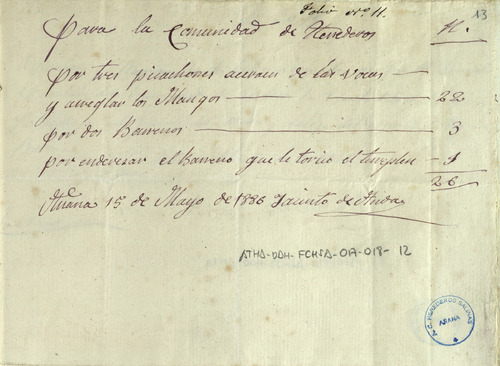 Folio nº 11.
13
Para la Comunidad de Herederos R.
por tres picachones acerar de las vocas
y arreglar los Mangos 22
por dos Barrenos 3
por enderesar el Barreno que le torcio el 1
26
Añana 15 de Mayo de 1886 Jacinto de
ATHA-DAH-FCHSA-OA-018-12
HEREDEROS SALINAS
AÑANA